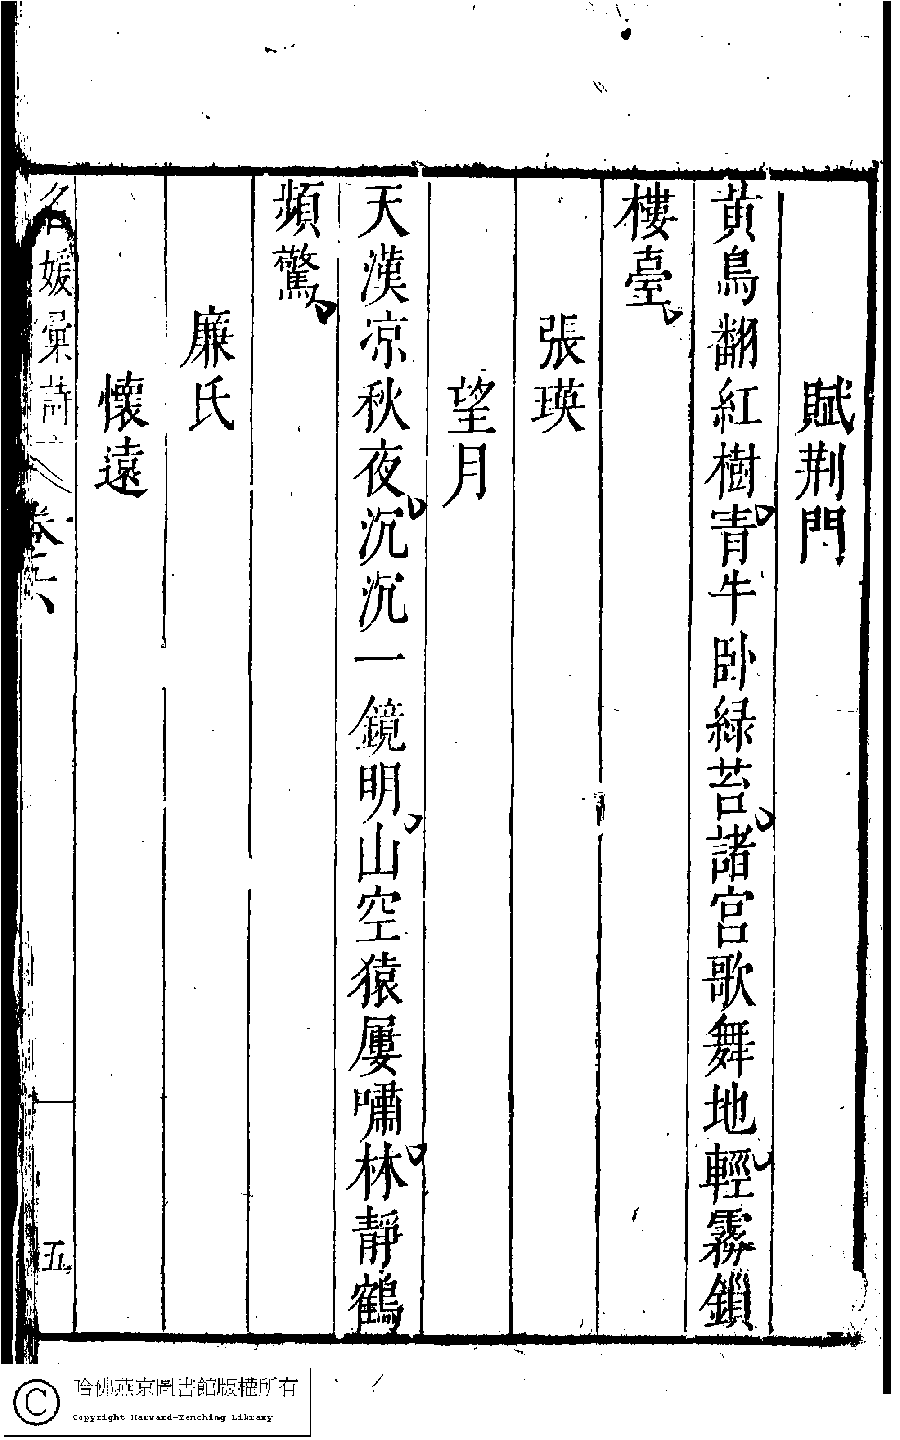 賦荆門
黄鳥翻紅樹青牛卧緑苔諸宫歌舞地輕霧鎖
樓臺
張瑛
望月
天漢凉秋夜沉沉一鏡明山空猿屢嘯林靜鶴
頻驚
廉氏
懷遠
名媛彙詩
卷六
五
哈佛燕京圖書館版權所有
Copyright Harvard-Yenching Library